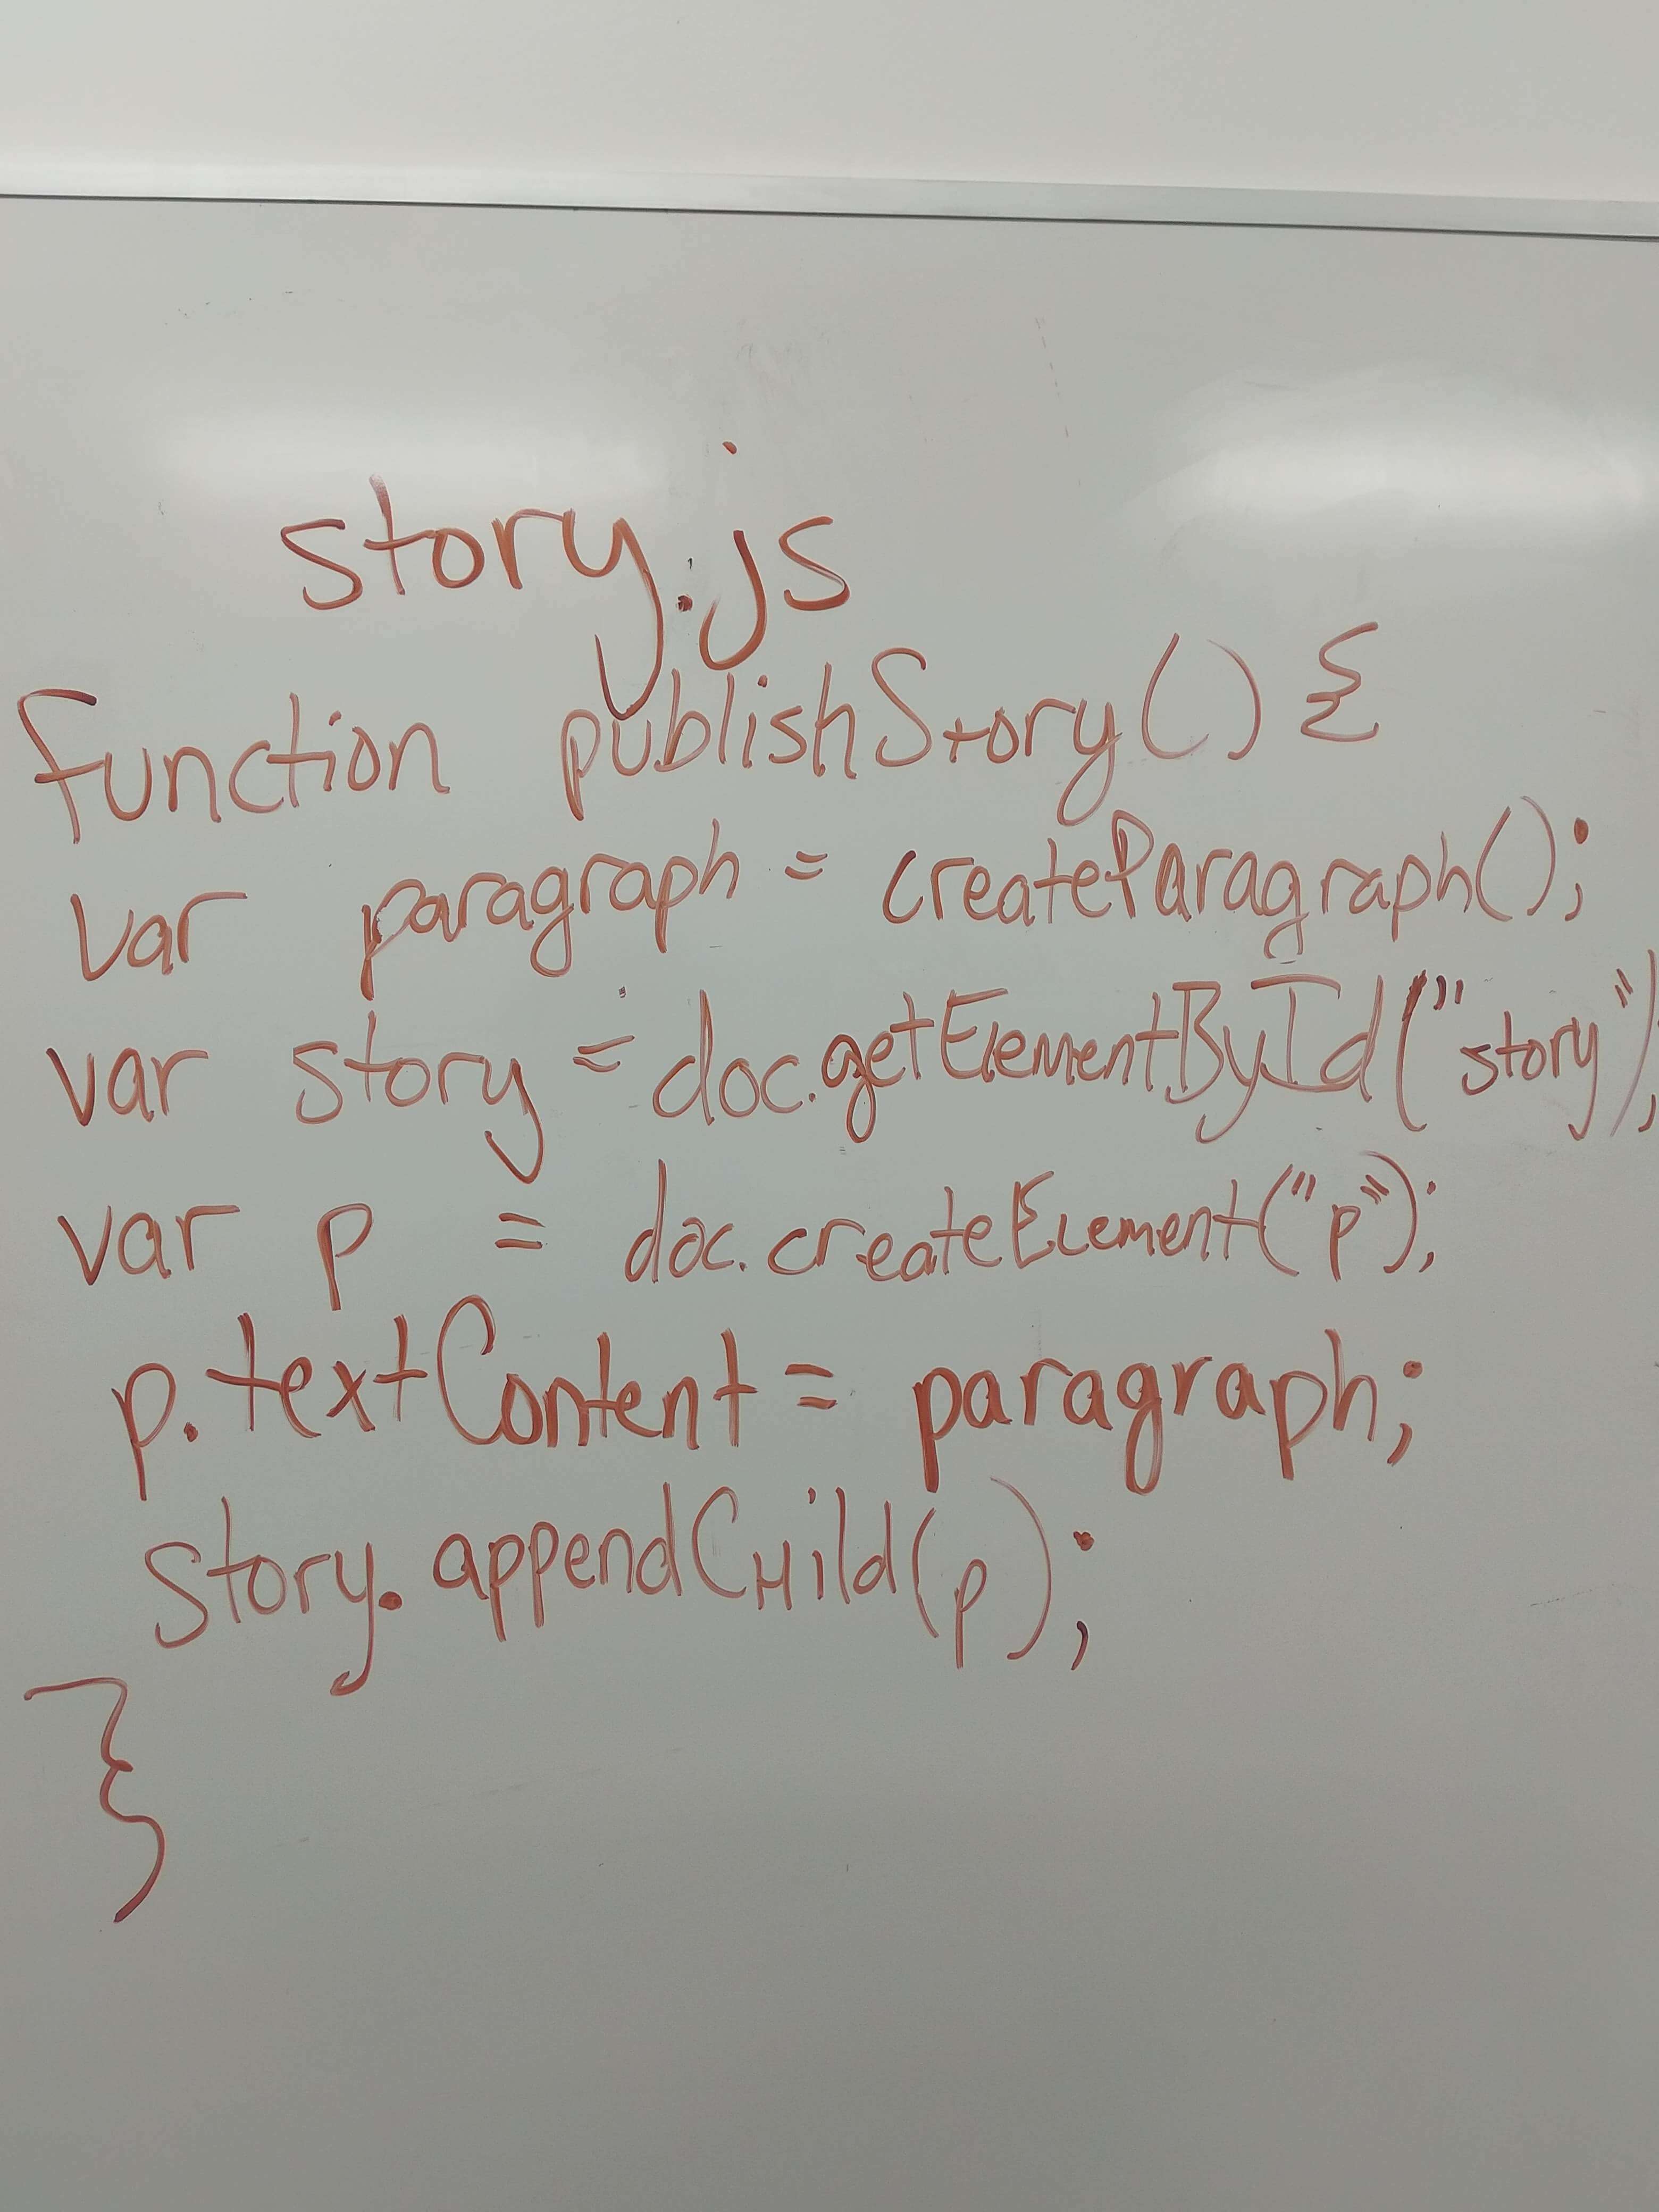 story.js
function publishStory() {
var paragraph = createParagraph();
var story = doc.getElementById("story");
var p = doc.createElement("p");
p.textContent = paragraph;
story.appendChild(p);
}